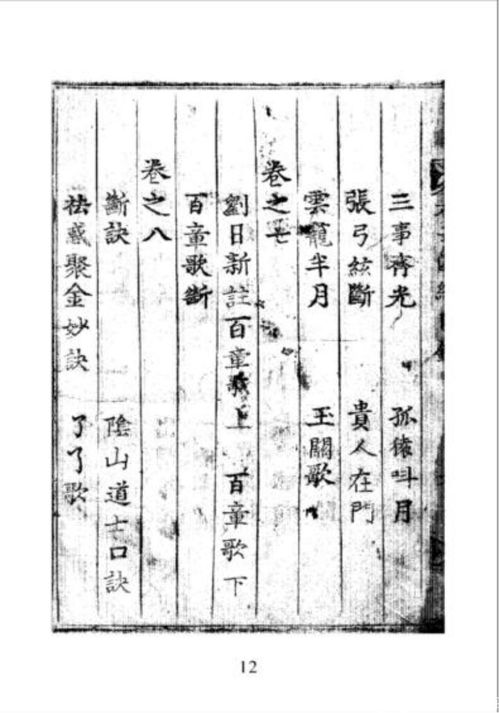 三事齊光 孤猿叫月
張弓絃斷 貴人在門
雲籠半月 玉關歌
卷之七
劉日新註百章歌上 百章歌下
百章歌斷
卷之八
斷訣 陰山道士口訣
祛惑聚金妙訣 了了歌
12